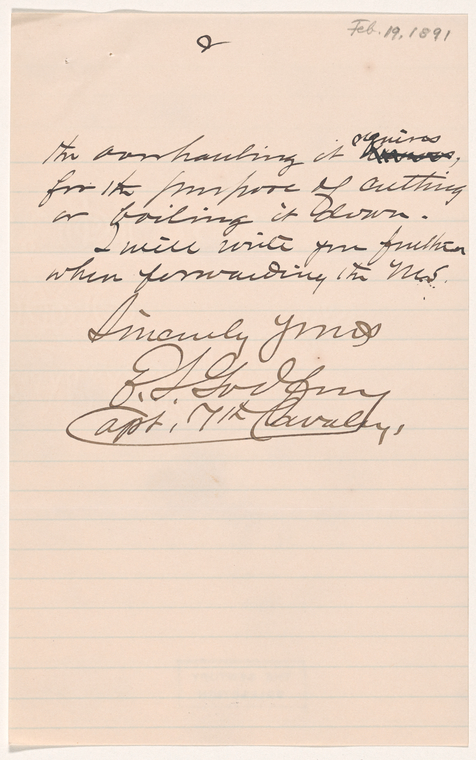 Feb. 19, 1891
2
the overhauling it requires,
for the purpose of cutting
or boiling it down.
I will write you further
when forwarding the Ms.
Sincerely Yours
E. S. Godfrey
Capt. 7th Cavalry.